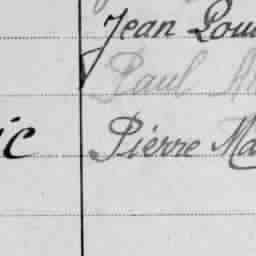 Jean
Paul
ic Pierre Ma